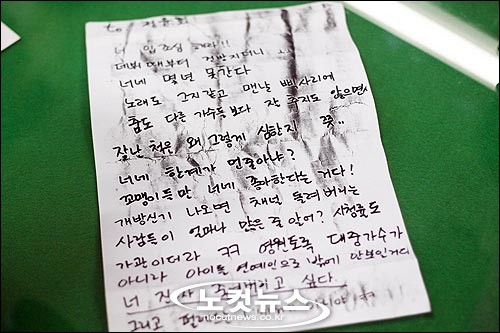 to. 정윤호
너 입조심 해라!!
데뷔 때부터 건방지더니
너네 몇년 못간다
노래도 그지같고 맨날 삐사리에
춤도 다른 가수들보다 잘 추지도 않으면서
잘난 척은 왜 그렇게 심한지 쯧..
너네 한계가 언줄아냐?
꼬맹이들만 너네 좋아한다는 거다!
개방신기 나오면 채널 돌려버리는
사람들이 얼마나 많은 줄 알어? 시청률도
가관이더라 ㅋㅋ 영원토록 대중가수가
아니라 아이돌 연예인으로 밖에 안보인거다
너 진짜 고 싶다.
그리고
노컷뉴스
nocutnews.co.kr